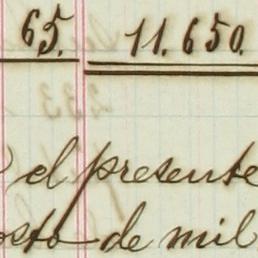 65. 11.650.
el presente
osto de mil